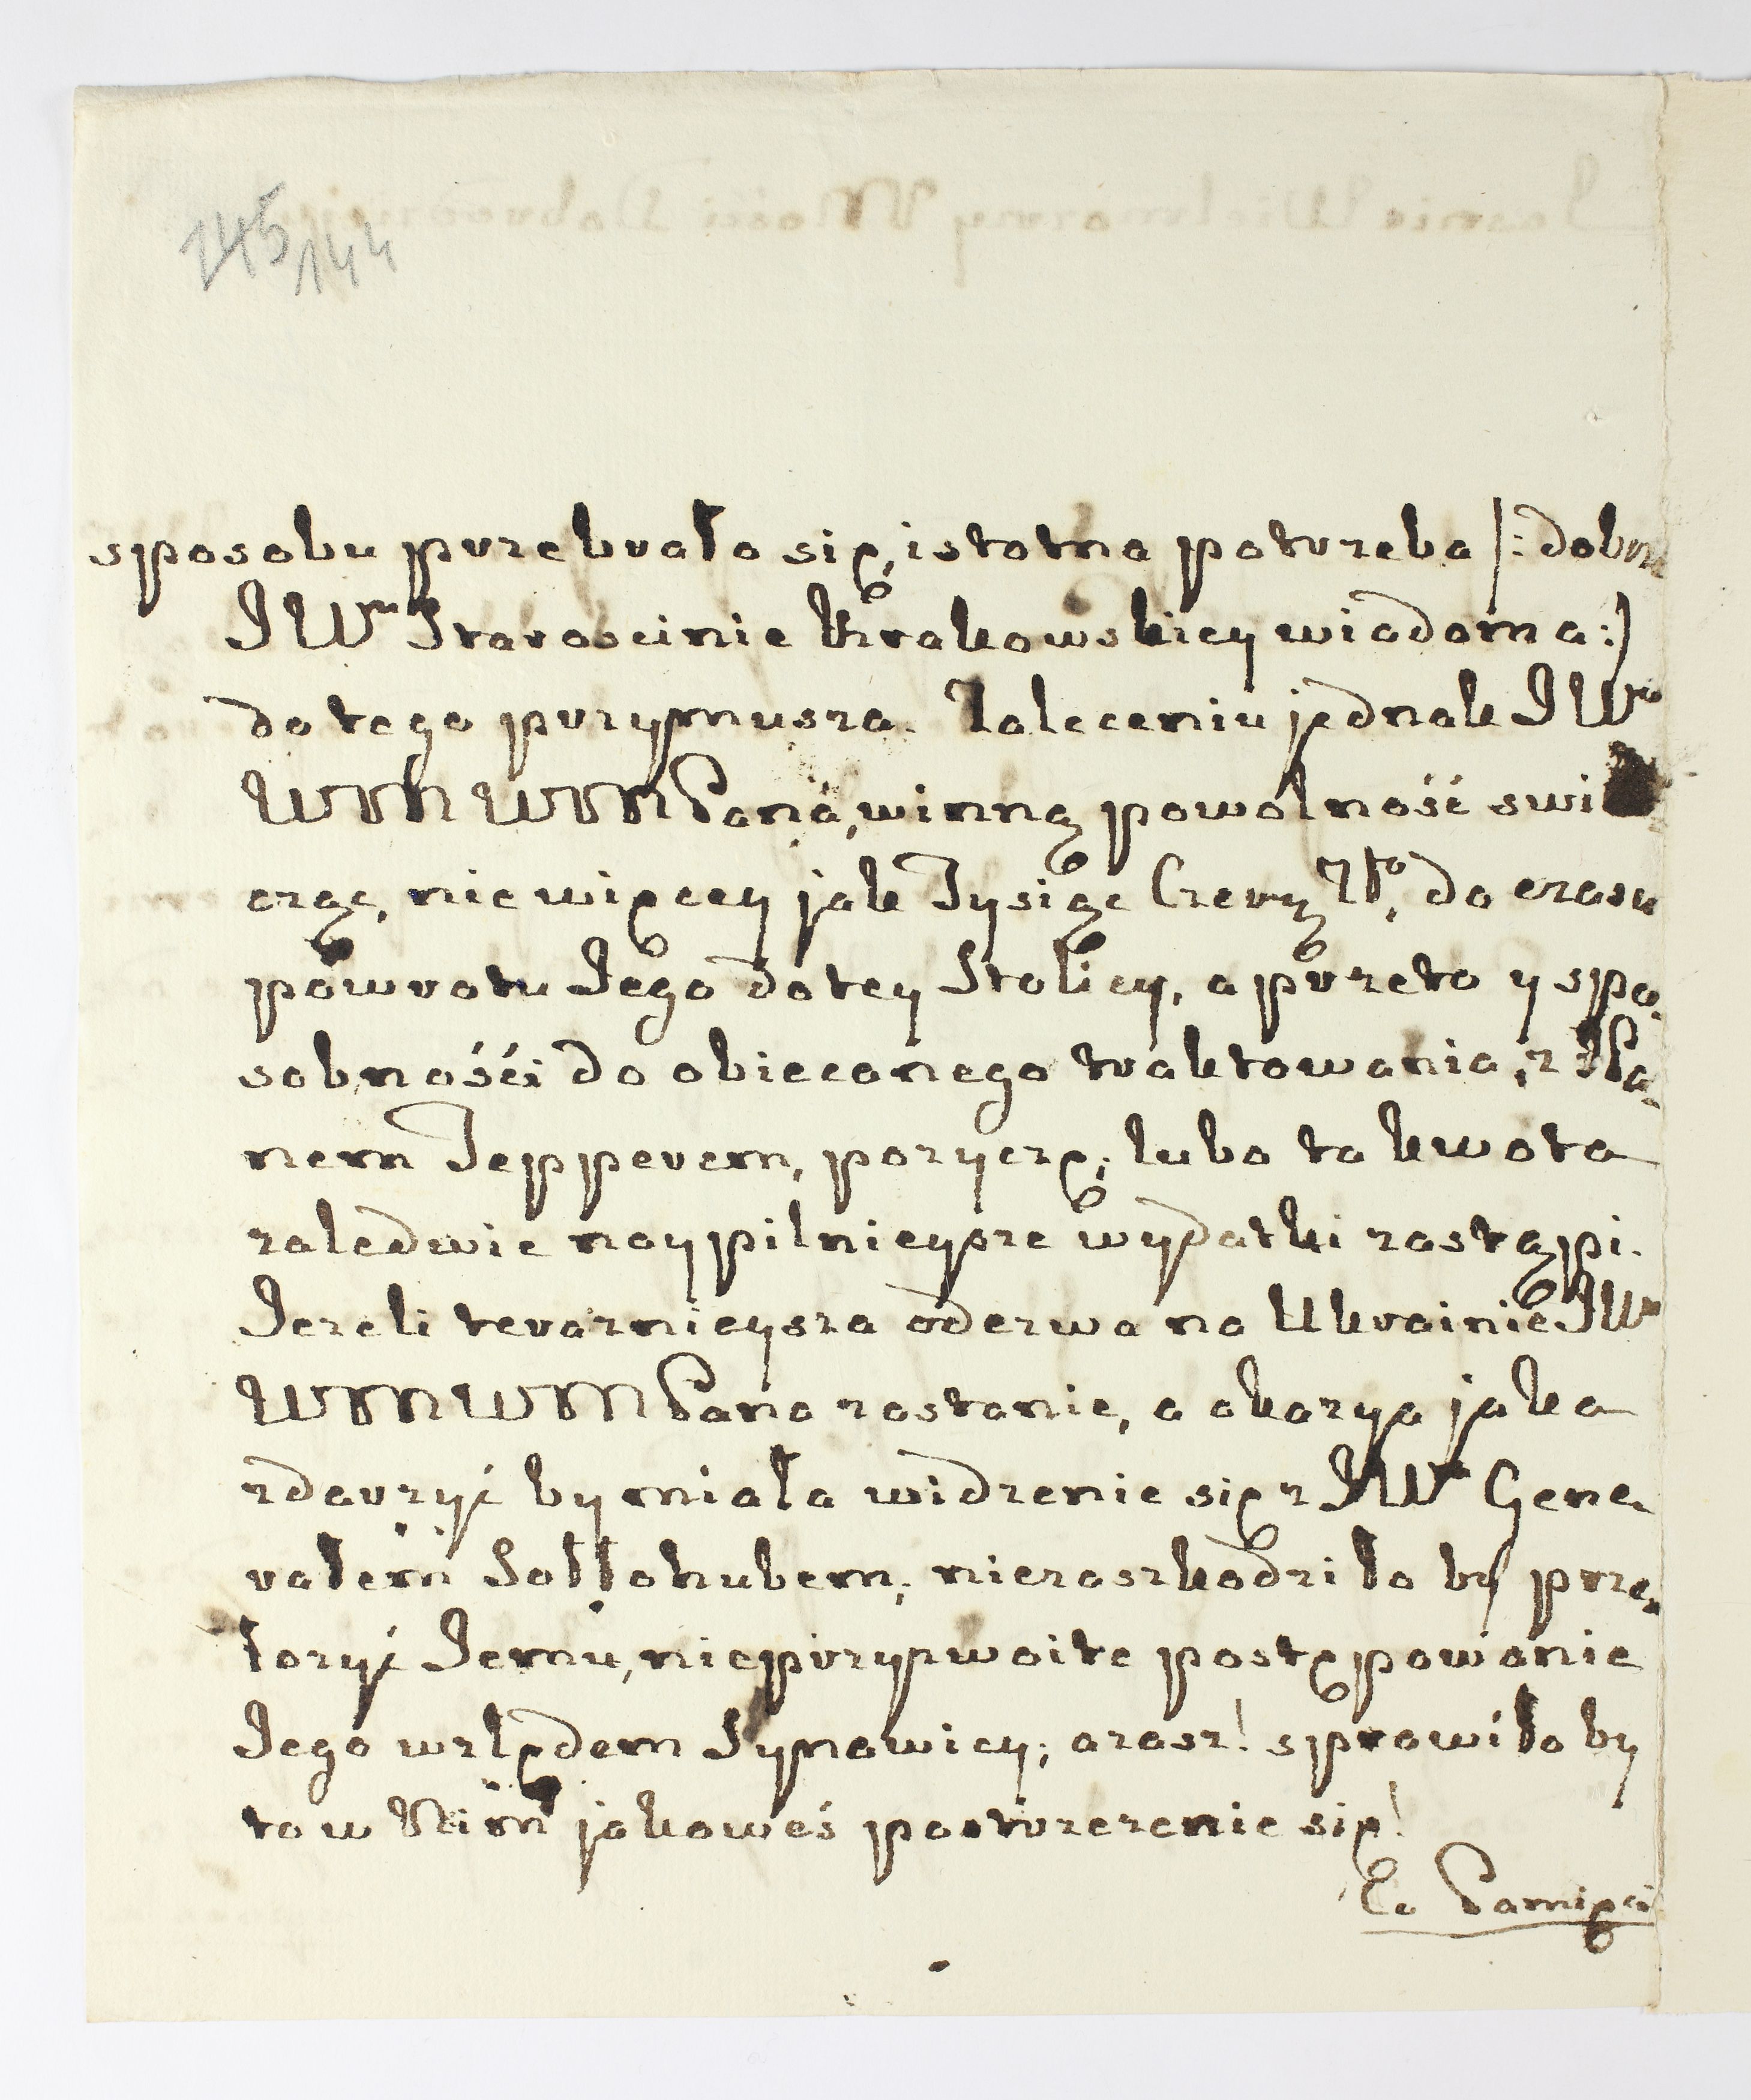 145/144
sposobu przebrało się, istotna potrzeba /: dobrze
JWney Starościnie Krakowskiey wiadoma :/
do tego przymusza. Zaleceniu jednak JWo
WMWM Pana, winną powolność swi
cząc, nie więcey jak Tysiąc Czerw Złto, do czasu
powrotu Jego do tey Stolicy, a przeto y spo-
sobności do obiecanego traktowania, z Pa-
nem Tepperem, pożyczę; lubo ta kwota
zaledwie naypilnieysze wydatki zastąpi.
Jeżeli teraznieysza oderwa na Ukrainie JWo
WMWM Pana zastanie, a okazya jaka
zdarzyć by miała widzenie się z JWm Gene-
rałem Sołłohubem, niezaszkodziło by prze-
łożyć Jemu, nieprzyzwoite postępowanie
Jego względem Synowicy; azasz! sprawiło by
to w Nim jakoweś postrzeżenie się!
Co Pamięci